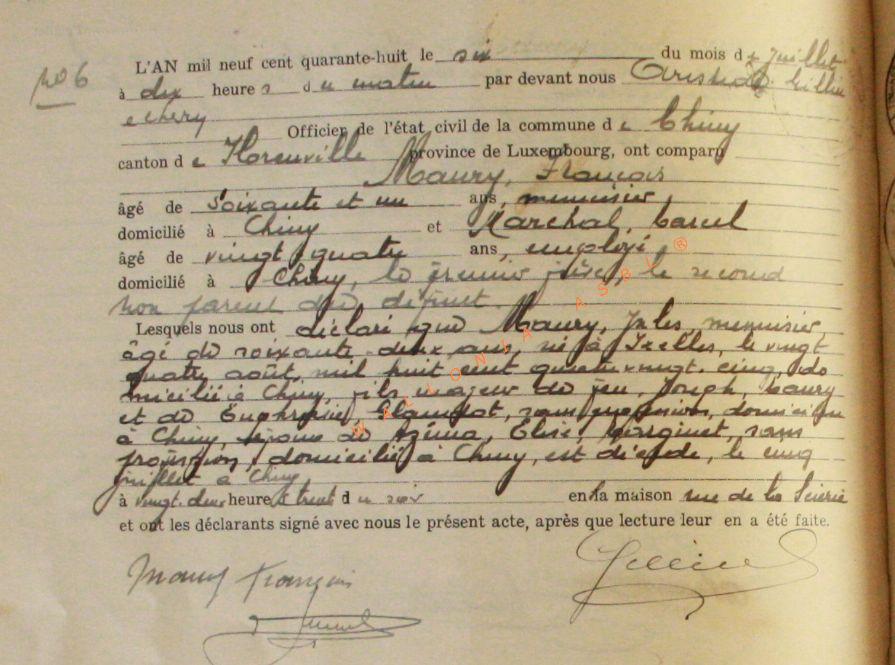 No 6
L'AN mil neuf cent quarante-huit le six du mois de Juillet
à dix heures du matin par devant nous Aristide
Officier de l'état civil de la commune de Chiny
canton de Florenville province de Luxembourg, ont comparu
Maury, François
âgé de soixante et un ans, menuisier,
domicilié à Chiny et Maréchal,
âgé de vingt quatre ans, employé,
domicilié à Chiny, le premier frère, le second
non parent du défunt.
Lesquels nous ont déclaré que Maury, Jules, menuisier,
âgé de soixante-deux ans, né à Ixelles, le vingt
quatre août, mil huit cent quatre vingt cinq, do
micilié à Chiny, fils majeur de feu, Joseph, Maury
et de Euphrasie, sans profession, domiciliée
à Chiny, époux de Azéma, Elise, sans
profession, domiciliée à Chiny, est décédé, le cinq
juillet à Chiny
à vingt-deux heures trente du soir en la maison rue de la Scierie
et ont les déclarants signé avec nous le présent acte, après que lecture leur en a été faite.
Maury François
WALLONIA ASBL ®